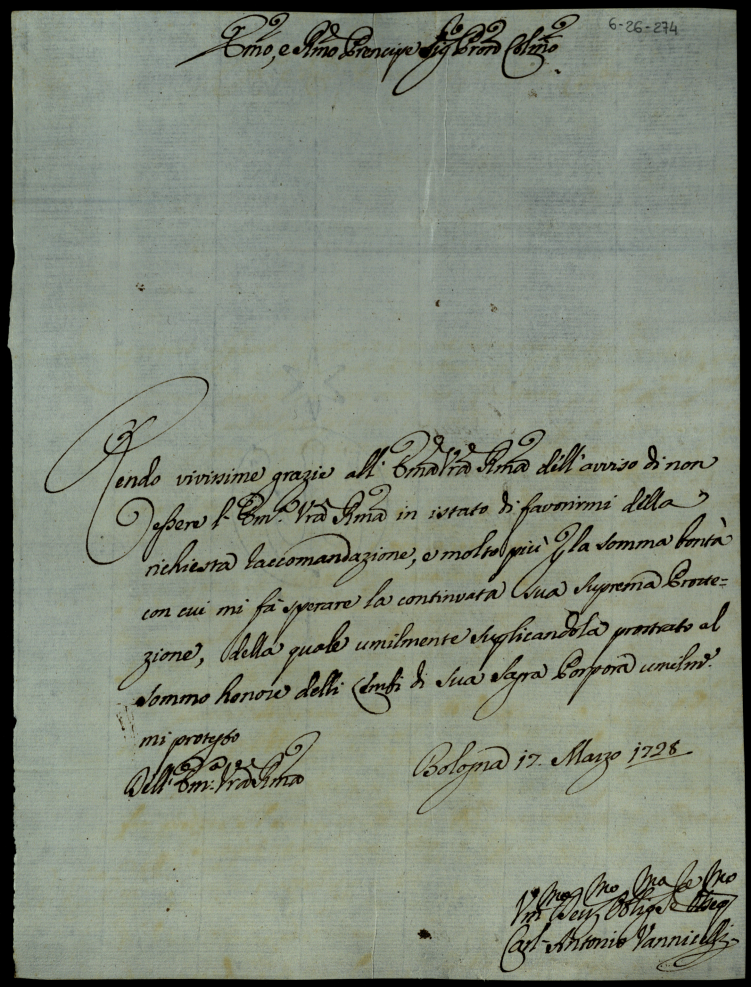 6-26-274
Emo, e Rmo Prencipe Sig Prone Colmo
Rendo vivissime grazie all' Emã Vrã Rmã dell'avviso di non
essere l' Emã Vrã Rmã in istato di favorirmi della
richiesta raccomandazione, e molto più ꝑ la somma bontà
con cui mi fà sperare la continvata sua suprema Prote=
zione, della quale umilmente suplicandola prostrato al
sommo honore delli di sua Sagra Porpora umilme.
mi protesto
Dell' Emã Vrã Rmã
Bologna 17. Marzo 1728
Vmo Devmo Obligmo e
Carl' Antonio Vannicelli